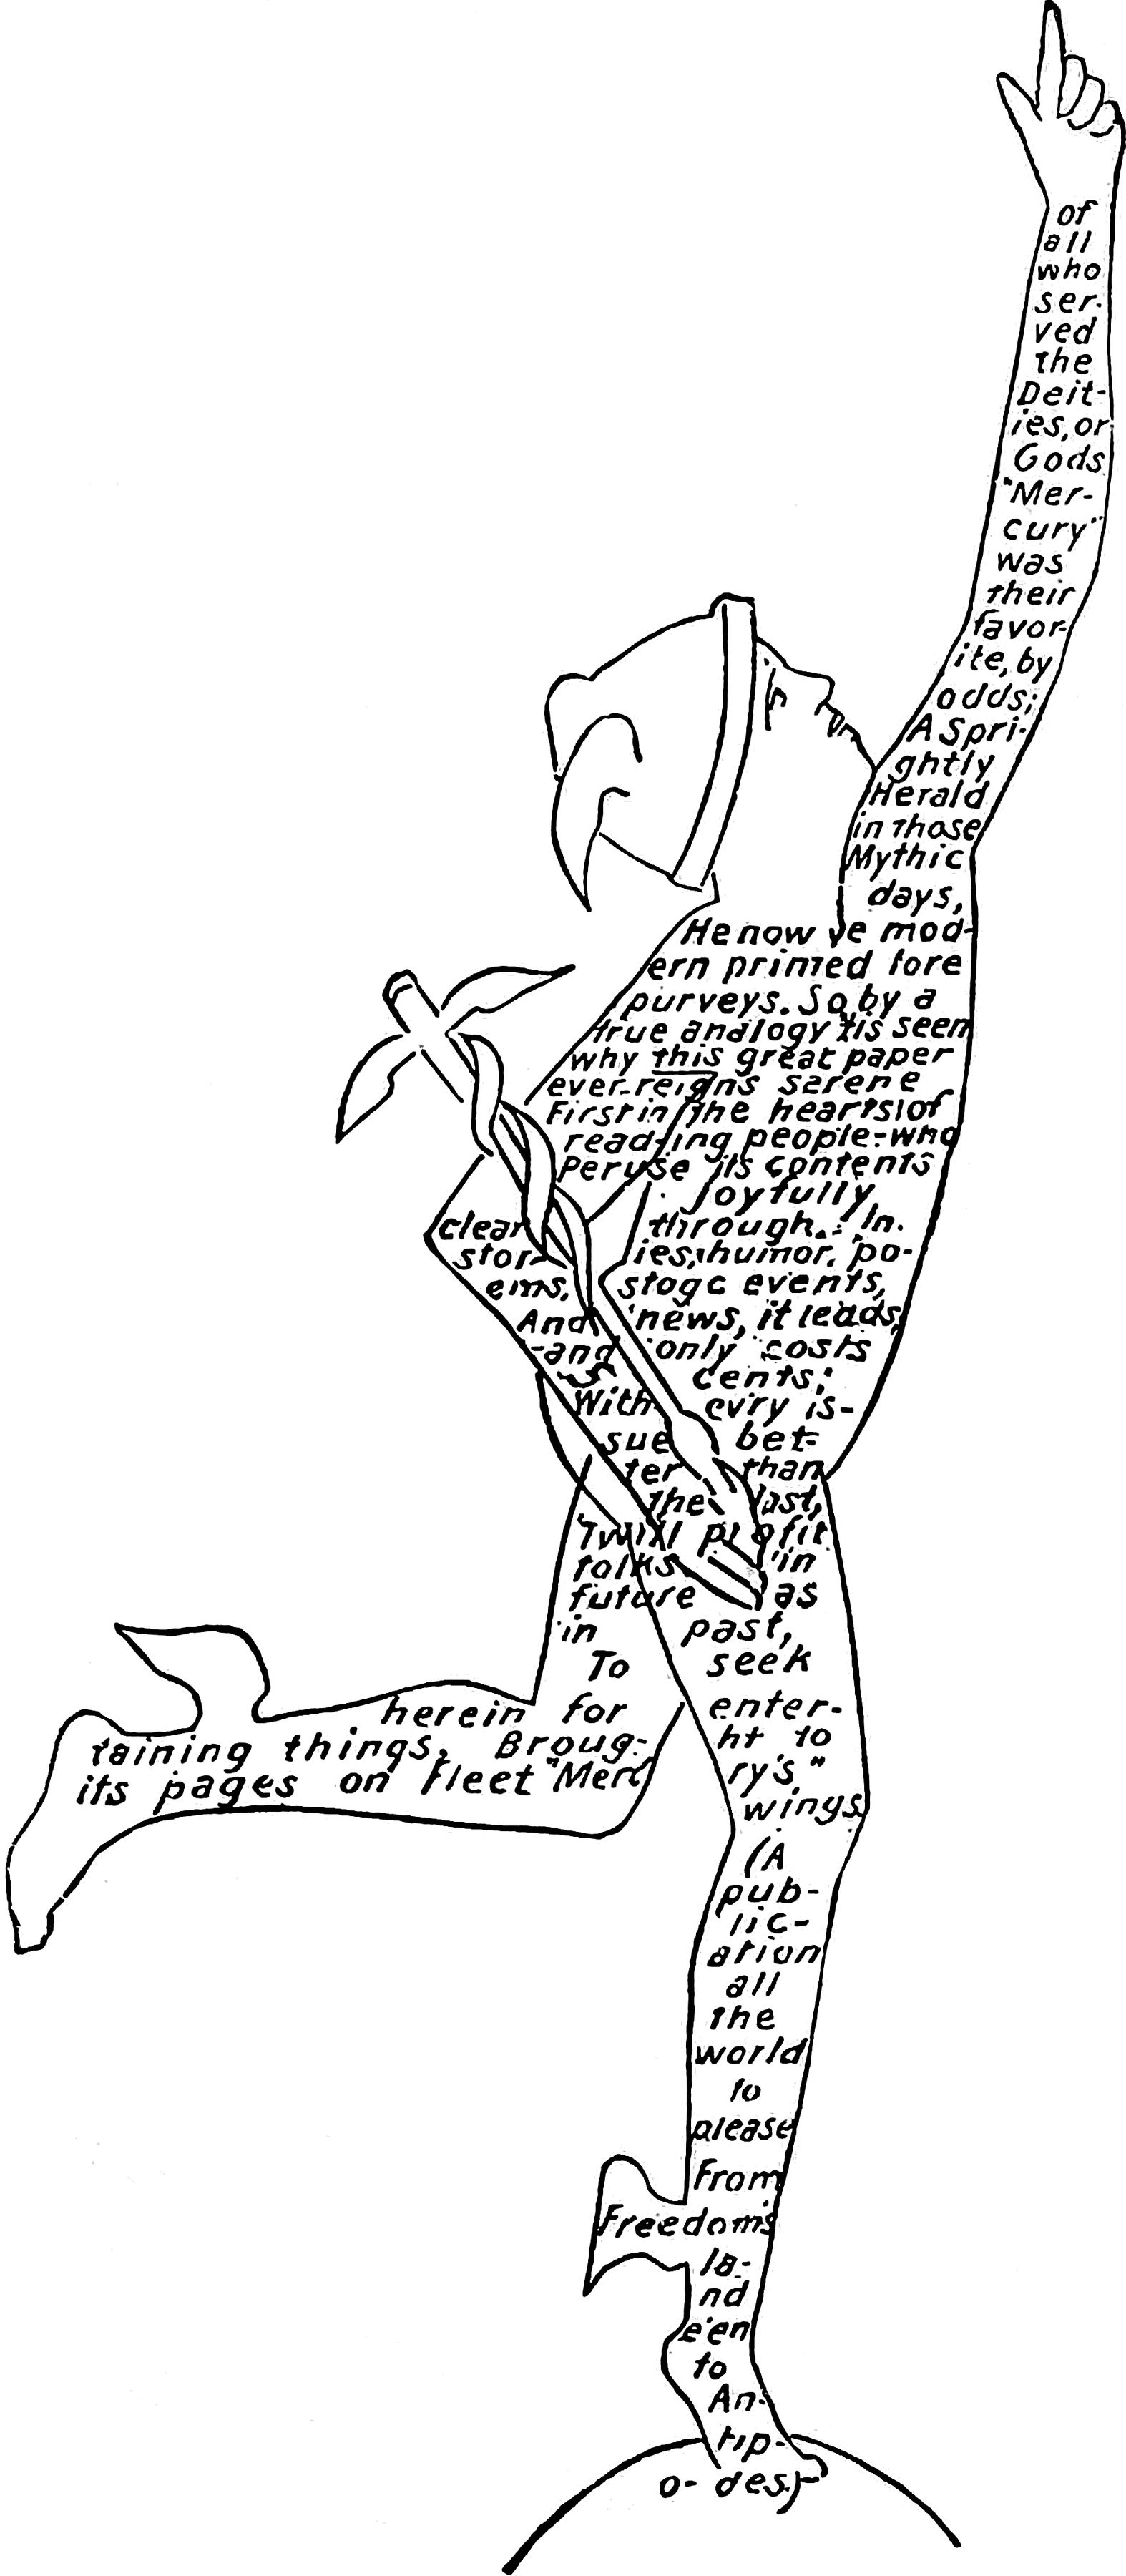 of
all
who
ser-
ved
the
Deit-
ies, or
Gods
"Mer-
cury"
was
their
favor-
ite, by
odds;
A Spri-
ghtly
Herald
in those
Mythic
days,
He now ye mod-
ern printed lore
purveys. So by a
true analogy 'tis seen
why this great paper
ever-reigns serene
First in the hearts of
read-ing people-who
Peruse its contents
joyfully
through. In
clear
stor- ies, humor, po-
ems, stage events,
And news, it leads,
-and only costs
5 cents;
With ev'ry is-
sue bet-
ter than
the last,
'Twill profit
folks in
future as
in past,
To seek
herein for enter-
taining things, Broug-
ht to
its pages on fleet "Mercu
ry's"
wings.
(A
pub-
lic-
ation
all
the
world
to
please
From
Freedom's
la-
nd
e'en
to
An-
tip-
o-des.)